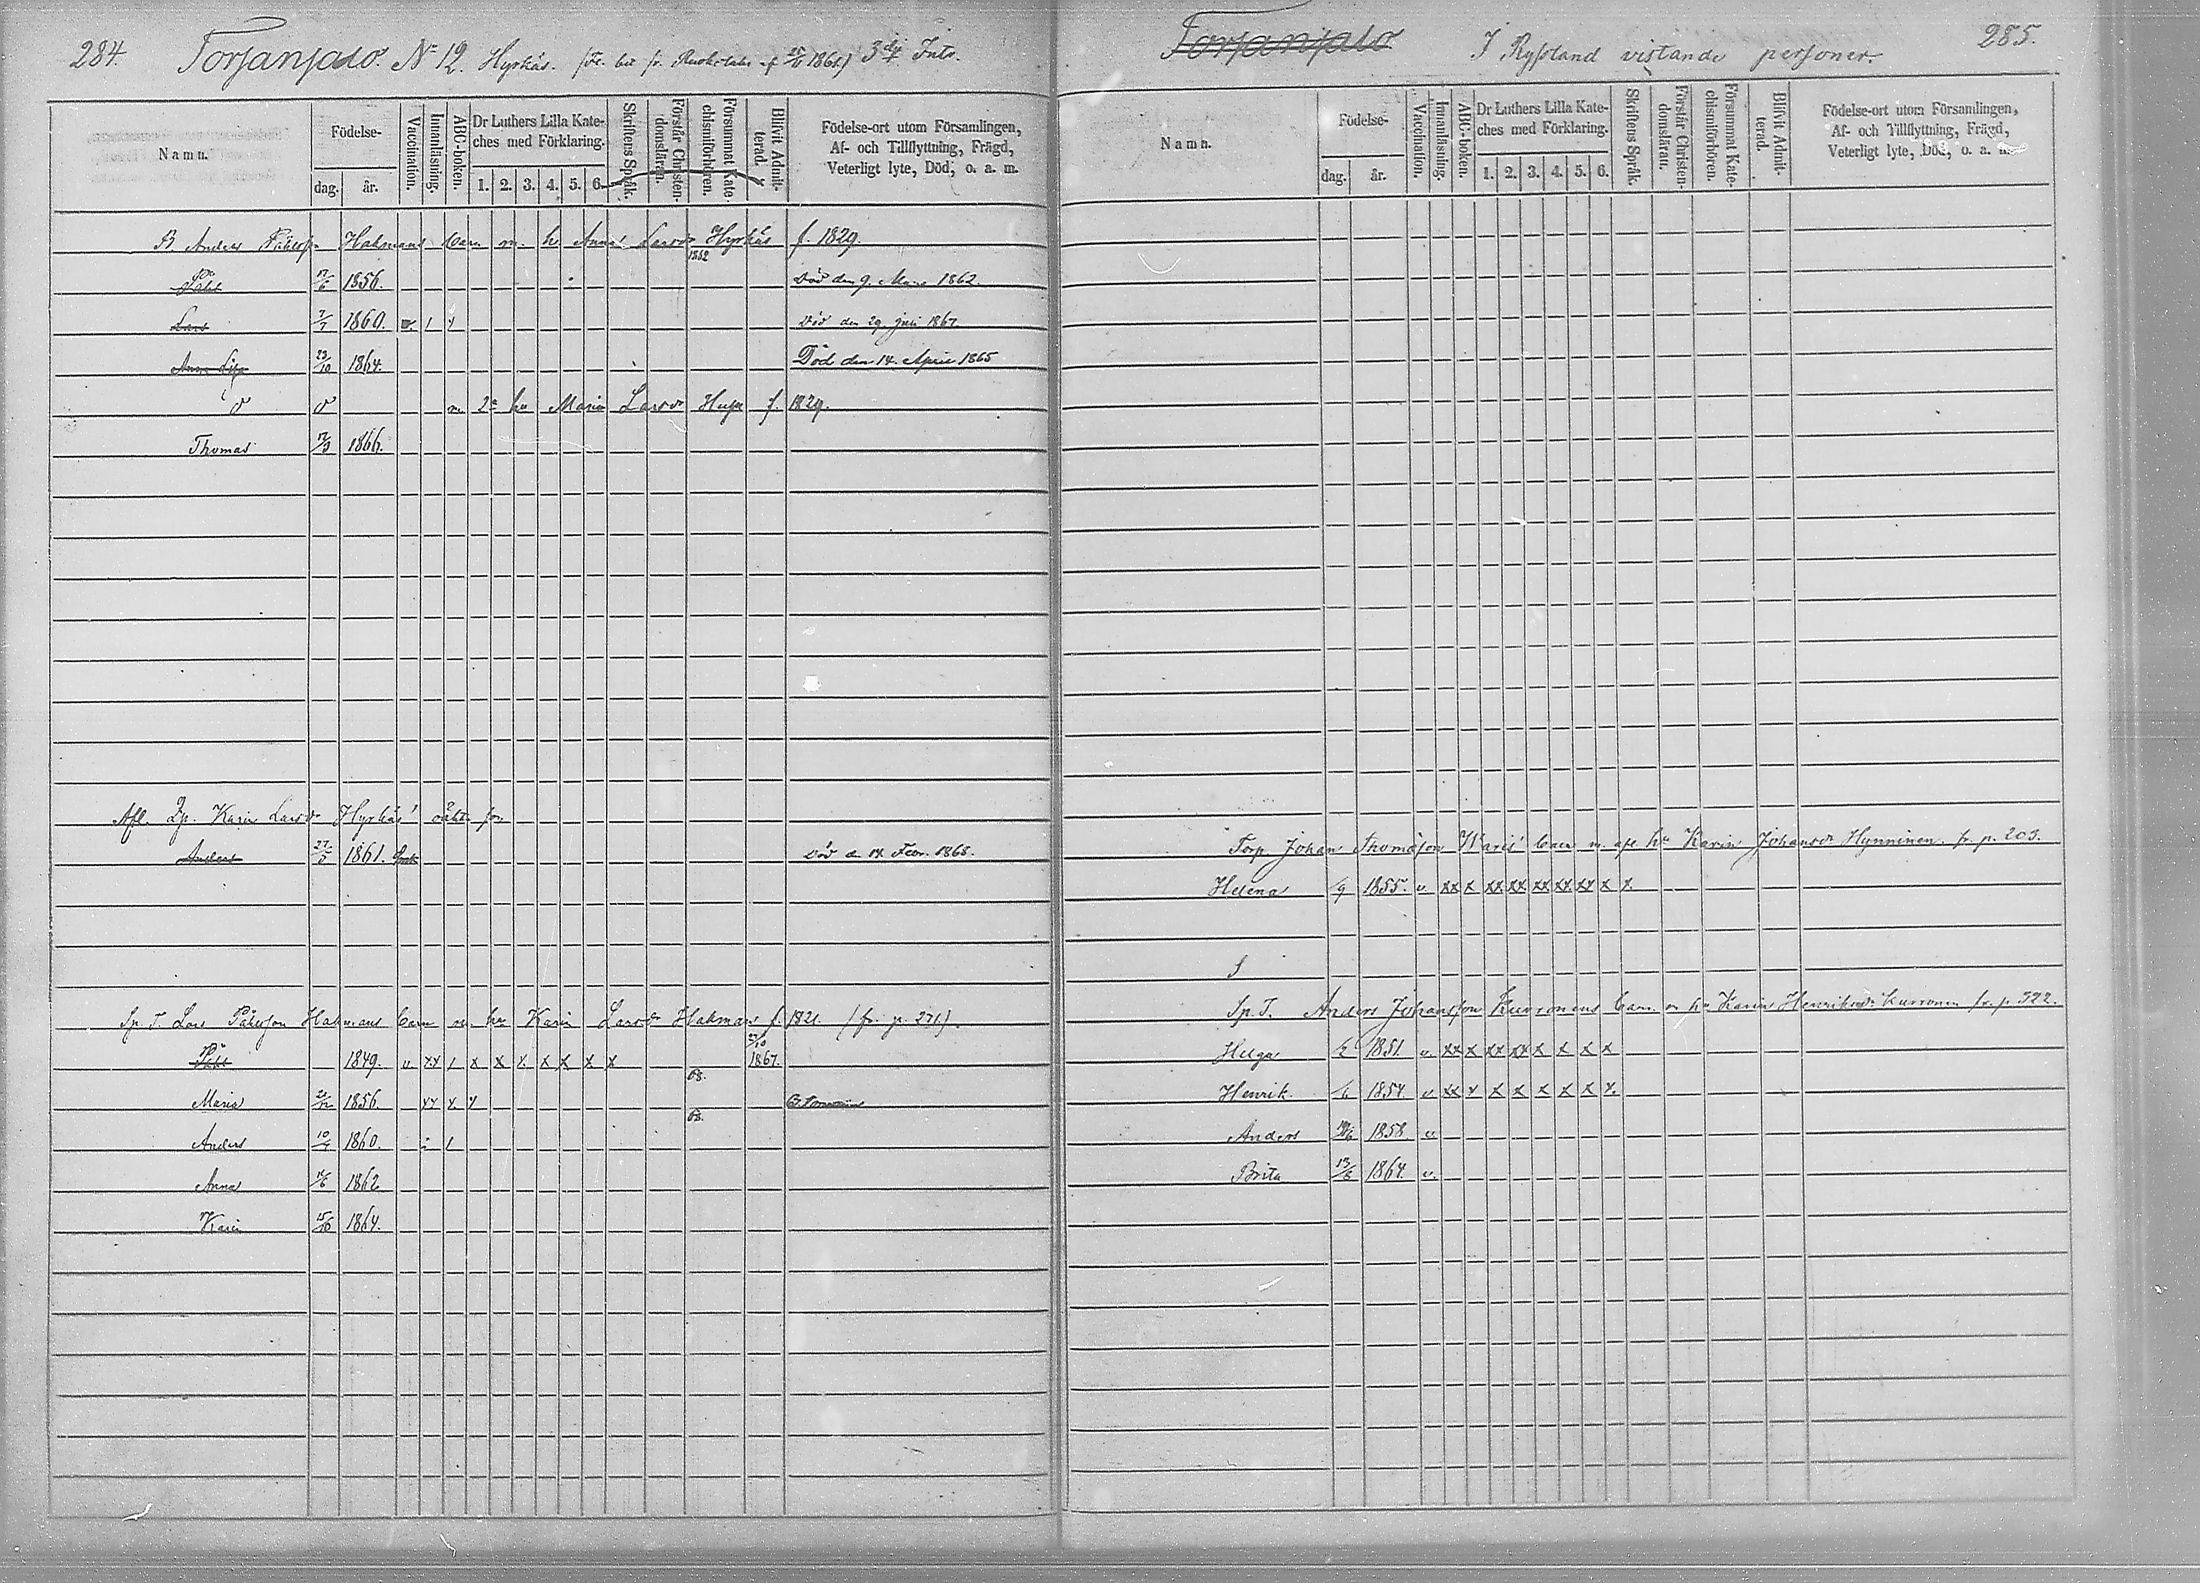 284. Torsansalo. N 12. Hyrkäs. 3dj Intr.
Namn. Födelse- dag. år. Vaccination. Innanläsning. ABC-boken. Dr Luthers Lilla Kateches med Förklaring. 1. 2. 3. 4. 5. 6. Skriftens Språk. Förstår Christendomsläran. Försummat Katechismiförhören. Blivit Admitterad. Födelse-ort utom Församlingen, Af- och Tillflyttning, Frägd, Veterligt lyte, Död, o. a. m.
B. Anders Påhlsson Hakmans barn m. h. Anna Larsdr Hyrkäs f. 1829.
1862
Påhl 17/6 1856. Död den 9. Mars 1862.
Lars 7/7 1860. Död den 29 juli 1867.
Anna Lisa 23/10 1864. Död den 14. April 1865
m 2a hu Maria Larsdr f. 1829.
Thomas 17/3 1866.
Afl. Karin Larsdr Hyrkäs' oäkta son
Anders 27/5 1861. Död d. 14 Febr. 1868.
Sp. T. Lars Påhlsson Hakmans barn m. hu Karin Larsdr Hakman f. 1821. (fr. p. 271).
Påhl 1849. v. xx / x x x x x x x 1867.
Maria 1856. xx x x
Anders 10/4 1860.
Anna 1862
Karin 15/10 1864.
Torsansalo I Ryssland vistande personer. 285.
Namn. Födelse- dag. år. Vaccination. Innanläsning. ABC-boken. Dr Luthers Lilla Kateches med Förklaring. 1. 2. 3. 4. 5. 6. Skriftens Språk. Förstår Christendomsläran. Försummat Katechismiförhören. Blivit Admitterad. Födelse-ort utom Församlingen, Af- och Tillflyttning, Frägd, Veterligt lyte, Död, o. a. m.
Torp. Johan Thomasson Waris' barn m. afl. hu Karin Johansdr Hynninen. fr. p. 203.
Helena /9 1855. v xx x xx xx xx xx xx x x
Sp. T. Anders Johansson Kurronens barn m hu Karin Henriksdr Kurronen fr. p. 322.
Helga 1851. v. xx x xx xx x x x x
Henrik /6 1854. v xx x x x x x x x.
Anders 1858 v.
Brita 13/6 1864. v.